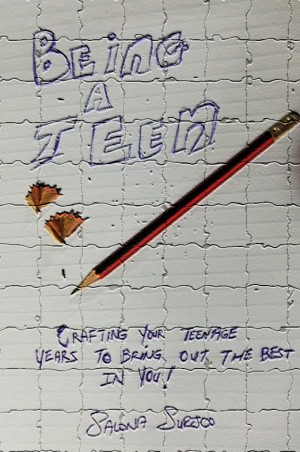 BEING
A
TEEN
CRAFTING YOUR TEENAGE
YEARS TO BRING OUT THE BEST
IN YOU!
SALONA